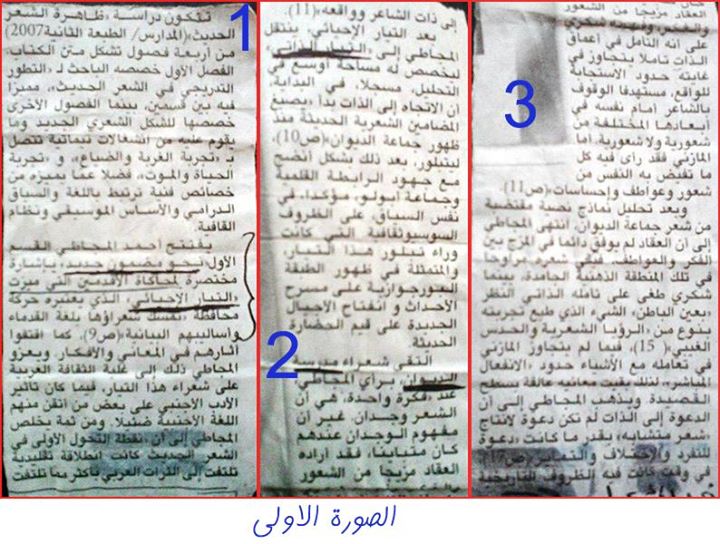 1
تتكون دراسة «ظاهرة الشعر
الحديث»(المدارس/ الطبعة الثانية2007)
من أربعة فصول تشكل متن الكتاب.
الفصل الأول خصصه الباحث لـ «التطور
التدريجي في الشعر الحديث»، مميزا
فيه بين قسمين، بينما الفصول الأخرى
خصصها للشكل الشعري الجديد وما
يقوم عليه من انشغالات تيماتية تتصل
بـ «تجربة الغربة والضياع»، و «تجربة
الحياة والموت»، فضلا عما يميزه من
خصائص فنية ترتبط باللغة والسياق
الدرامي والأساس الموسيقي ونظام
القافية.
يفتتح أحمد المجاطي القسم
الأول «نحو مضمون جديد» بإشارة
مختصرة لمحاكاة الأقدمين التي ميزت
«التيار الإحيائي»، الذي يعتبره حركة
محافظة «تمسك شعراؤها بلغة القدماء
وأساليبهم البيانية»(ص9)، كما اقتفوا
آثارهم في المعاني والأفكار. ويعزو
المجاطي ذلك إلى غلبة الثقافة العربية
على شعراء هذا التيار، فيما كان تأثير
الأدب الأجنبي على بعض من أتقن منهم
اللغة الأجنبية ضئيلا. ومن ثمة يخلص
المجاطي إلى أن «نقطة التحول الأولى في
الشعر الحديث كانت انطلاقة تقليدية
تلتفت إلى التراث العربي بأكثر بما تلتفت
2
إلى ذات الشاعر وواقعه»(11).
بعد التيار الإحيائي، ينتقل
المجاطي إلى «التيار الذاتي»،
ليخصص له مساحة أوسع في
التحليل، مسجلا، في البداية
أن الاتجاه إلى الذات بدأ يصبغ
المضامين الشعرية الحديثة منذ
ظهور جماعة الديوان»(ص10)،
ليتبلور، بعد ذلك بشكل أنضج
مع جهود الرابطة القلمية
وجماعة أبولو، مؤكدا، في
نفس السياق على الظروف
السوسيوثقافية التي كانت
وراء تبلور هذا التيار،
والمتمثلة في ظهور الطبقة
البورجوازية على مسرح
الأحداث و انفتاح الأجيال
الجديدة على قيم الحضارة
الحديثة.
التقى شعراء مدرسة
الديوان، برأي المجاطي،
عند «فكرة واحدة، هي أن
الشعر وجدان. غير أن
مفهوم الوجدان عندهم
كان متباينا، فقد أراده
العقاد مزيجا من الشعور
3
العقاد مزيجا من الشعور
والفكر، وفهمه شكري
على أنه التأمل في أعماق
الذات تأملا يتجاوز في
غايته حدود الاستجابة
للواقع، مستهدفا الوقوف
بالشاعر أمام نفسه في
أبعادها المختلفة من
شعورية ولا شعورية، أما
المازني فقد رأى فيه كل
ما تفيض به النفس من
شعور وعواطف وإحساسات»(ص11).
وبعد تحليل نماذج نصية مقتضبة
من شعر جماعة الديوان، انتهى المجاطي
إلى أن العقاد لم يوفق دائما في المزج بين
الفكر والعواطف، فبقي شعره مراوحا
في تلك المنطقة الذهنية الجامدة، بينما
شكري طغى على تأمله الذاتي النظر
«بعين الباطن» الشيء الذي طبع تجربته
بنوع من «الرؤيا الشعرية والحدس
الغيبي»( 15)، فيما لم يتجاوز المازني
في تعامله مع الأشياء حدود «الانفعال
المباشر، لذلك بقيت معانيه عالقة بسطح
القصيدة. ويذهب المجاطي إلى أن
الدعوة إلى الذات لم تكن دعوة لإنتاج
شعر متشابه، بقدر ما كانت «دعوة
للتفرد والاختلاف والتمايز»(ص17)
في وقت كانت فيه الظروف التاريخية
الصورة الاولى